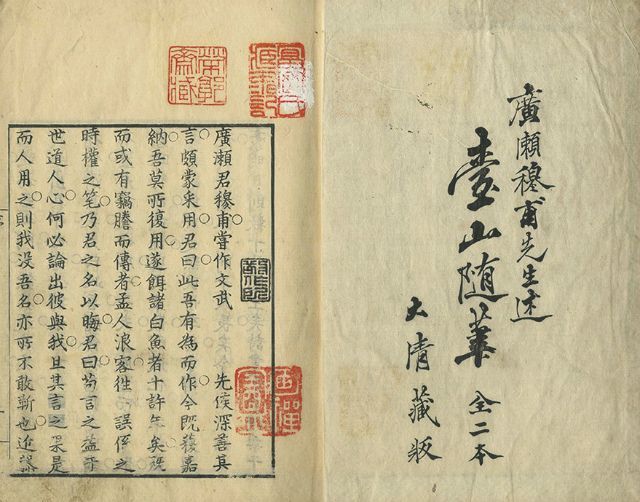 廣瀬穆甫先生述
臺山随筆 全二本
大清藏版
廣瀬君穆甫嘗作文武
先侯深善其
言頗蒙采用君曰此吾有為而作今既蒙嘉
納吾莫所復用遂餌諸白魚者十許年矣
而或有竊謄而傳者孟人浪客徃 誤係之
時權之笔乃君之名以晦君曰苟言之益乎
世道人心何必論出彼與我且其言之果是
而人用之則我没吾名亦所不敢